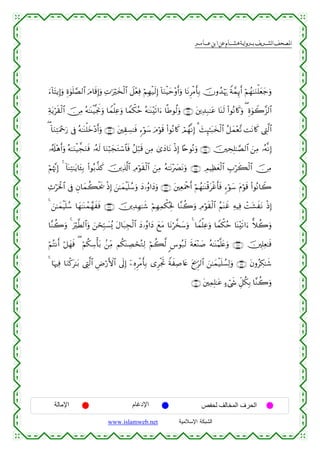 المصحف الشريف برواية هشام عن ابن عامر
وَجَعَلْنَٰهُمْ أَئِمَّةً يَهْدُونَ بِأَمْرِنَا وَأَوْحَيْنَا إِلَيْهِمْ فِعْلَ ٱلْخَيْرَٰتِ وَإِقَامَ ٱلصَّلَوٰةِ وَإِيتَآءَ
ٱلزَّكَوٰةِ وَكَانُوا۟ لَنَا عَٰبِدِينَ وَلُوطًا ءَاتَيْنَٰهُ حُكْمًا وَعِلْمًا وَنَجَّيْنَٰهُ مِنَ ٱلْقَرْيَةِ
ٱلَّتِي كَانَت تَّعْمَلُ ٱلْخَبَٰٓئِثَ إِنَّهُمْ كَانُوا۟ قَوْمَ سَوْءٍ فَٰسِقِينَ وَأَدْخَلْنَٰهُ فِي رَحْمَتِنَآ
إِنَّهُۥ مِنَ ٱلصَّٰلِحِينَ وَنُوحًا إِذْ نَادَىٰ مِن قَبْلُ فَٱسْتَجَبْنَا لَهُۥ فَنَجَّيْنَٰهُ وَأَهْلَهُۥ
مِنَ ٱلْكَرْبِ ٱلْعَظِيمِ وَنَصَرْنَٰهُ مِنَ ٱلْقَوْمِ ٱلَّذِينَ كَذَّبُوا۟ بِـَٔايَٰتِنَآ إِنَّهُمْ
كَانُوا۟ قَوْمَ سَوْءٍ فَأَغْرَقْنَٰهُمْ أَجْمَعِينَ وَدَاوُۥدَ وَسُلَيْمَٰنَ إِذْ يَحْكُمَانِ فِي ٱلْحَرْثِ
إِذْ نَفَشَتْ فِيهِ غَنَمُ ٱلْقَوْمِ وَكُنَّا لِحُكْمِهِمْ شَٰهِدِينَ فَفَهَّمْنَٰهَا سُلَيْمَٰنَ
وَكُلًّا ءَاتَيْنَا حُكْمًا وَعِلْمًا وَسَخَّرْنَا مَعَ دَاوُۥدَ ٱلْجِبَالَ يُسَبِّحْنَ وَٱلطَّيْرَ وَكُنَّا
فَٰعِلِينَ وَعَلَّمْنَٰهُ صَنْعَةَ لَبُوسٍ لَّكُمْ لِيُحْصِنَكُم مِّنۢ بَأْسِكُمْ فَهَلْ أَنتُمْ
شَٰكِرُونَ وَلِسُلَيْمَٰنَ ٱلرِّيحَ عَاصِفَةً تَجْرِي بِأَمْرِهِۦٓ إِلَى ٱلْأَرْضِ ٱلَّتِي بَٰرَكْنَا فِيهَا
وَكُنَّا بِكُلِّ شَيْءٍ عَٰلِمِينَ
الحرف المخالف لحفص الإدغام الإمالة
الشبكة الإسلامية www.islamweb.net